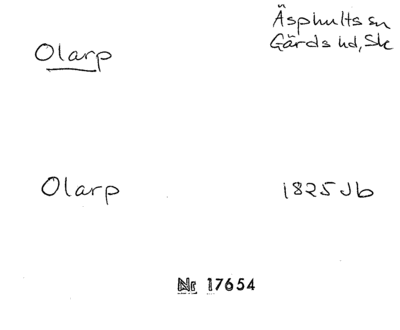 Olarp
Äsphults sn
Gärds hd, Sk
Olarp
1825 Jb
Nr 17654